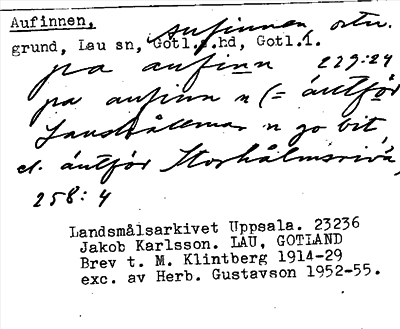 Aufinnen, aufinnen
grund, Lau sn, Gotl.s.hd, Gotl.l.
pa aufinn 229:24
pa aufinn n (= áutför
n go bit,
el. áutför Storhålmsrivå,
258:4
Landsmålsarkivet Uppsala. 23236
Jakob Karlsson. LAU, GOTLAND
Brev t. M. Klintberg 1914-29
exc. av Herb. Gustavson 1952-55.